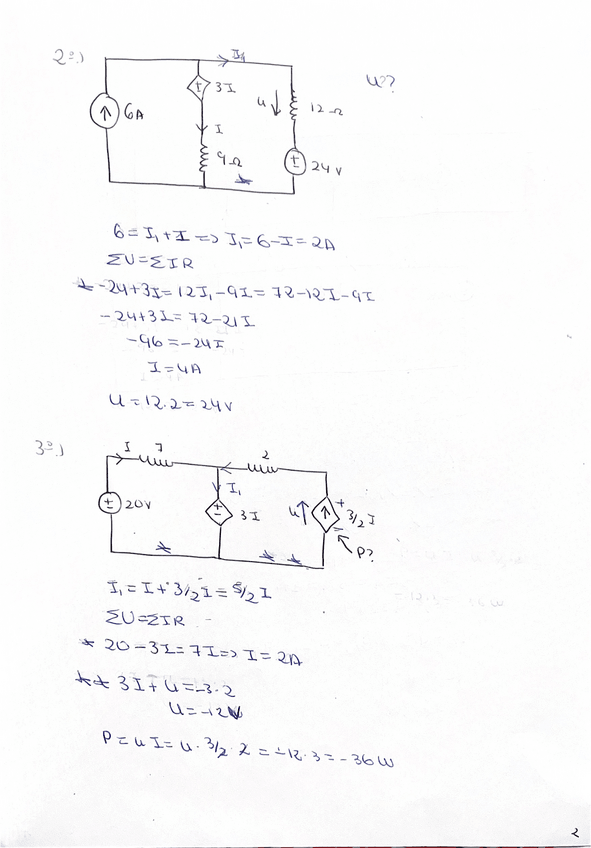 2º.)
I₁
3I
u?
6A
u
12 Ω
I
9 Ω
24 V
*
6 = I₁ + I => I₁ = 6 - I = 2A
ΣU = ΣIR
* -24 + 3I = 12I₁ - 9I = 72 - 12I - 9I
-24 + 3I = 72 - 21I
-96 = -24I
I = 4A
U = 12.2 = 24V
3º.)
I 7 2
I₁
20V
3I
u
+
3/2 I
-
P?
* * *
I₁ = I + 3/2 I = 5/2 I
ΣU = ΣIR
* 20 - 3I = 7I => I = 2A
** 3I + U = -3.2
U = -12V
P = U I = U. 3/2. 2 = -12.3 = -36W
2